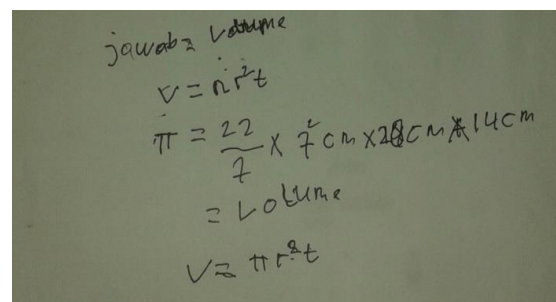 jawab = Volume
V = π r² t
π = 22/7 × 7² cm × 28 cm × 14 cm
= Volume
V = π r² t